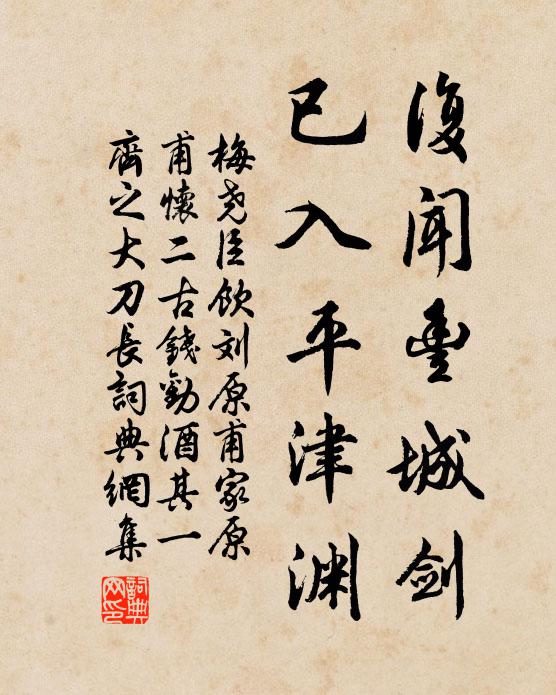 復闻豊城剑
已入平津渊
梅尧臣饮刘原甫家原
甫懷二古錢勸酒其一
齊之大刀長詞典網集
詞典
网印